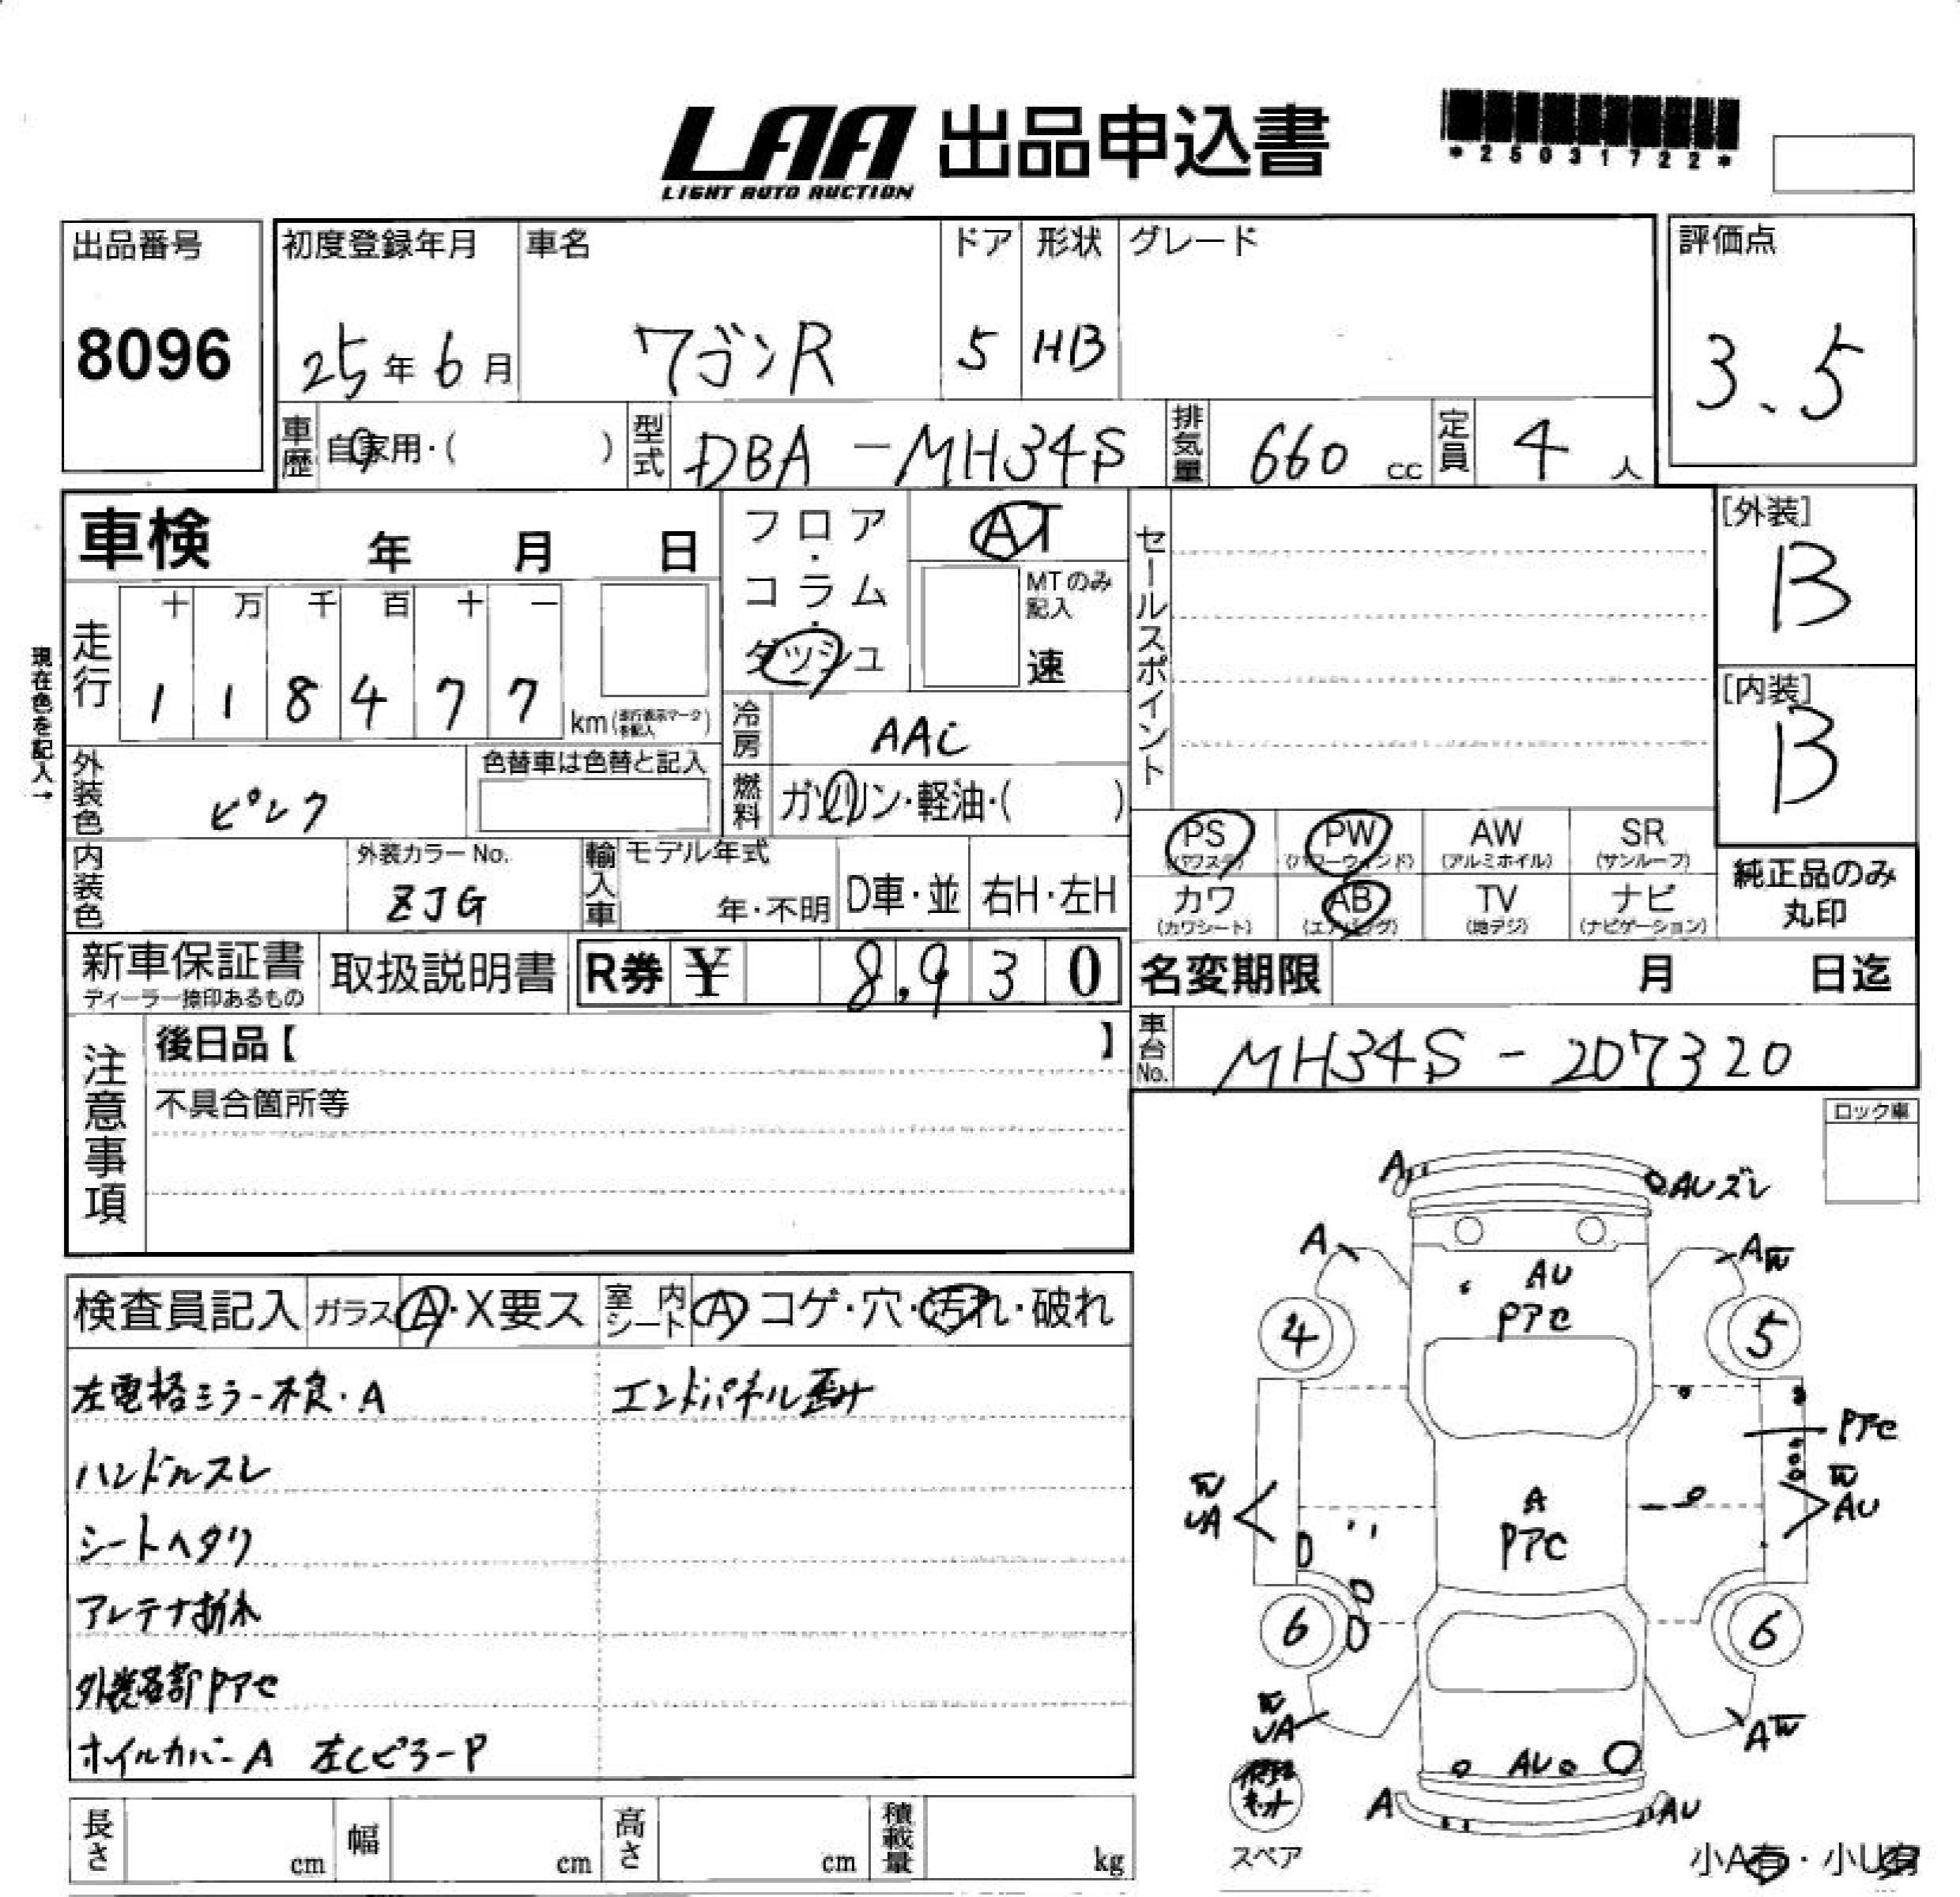 LAA 出品申込書
LIGHT AUTO AUCTION
*25031722*
出品番号
8096
初度登録年月
25年6月
車名
ワゴンR
ドア
5
形状
HB
グレード
評価点
3.5
車歴 自家用・( )
型式 DBA-MH34S
排気量 660 cc
定員 4 人
車検 年 月 日
現在色を記入→
走行
十 万 千 百 十 一
1 1 8 4 7 7 km(走行表示マークを記入)
フロア・コラム・ダッシュ
AT
MTのみ記入
速
冷房 AAC
燃料 ガソリン・軽油・( )
セールスポイント
[外装]
B
[内装]
B
外装色 ピンク
色替車は色替と記入
内装色
外装カラーNo.
ZJG
輸入車 モデル年式
年・不明 D車・並 右H・左H
PS (パワステ)
PW (パワーウィンド)
AW (アルミホイル)
SR (サンルーフ)
カワ (カワシート)
AB (エアバッグ)
TV (地デジ)
ナビ (ナビゲーション)
純正品のみ
丸印
新車保証書
ディーラー捺印あるもの
取扱説明書
R券 ¥ 8,930
名変期限 月 日迄
車台No. MH34S-207320
注意事項
後日品【 】
不具合箇所等
ロック車
検査員記入 ガラス A・X要ス 室内シート A コゲ・穴・汚れ・破れ
左電格ミラー不良・A
エンドパネル歪み
ハンドルスレ
シートヘタリ
アンテナ折れ
外装各部Pアセ
ホイルカバーA 左CピラーP
A
AUズレ
A
A
AU
Pアセ
4
5
Pアセ
UA
A
Pアセ
AU
6
6
UA
A
AU
A
AU
キット
スペア
小A有・小U有
長さ cm
幅 cm
高さ cm
積載量 kg